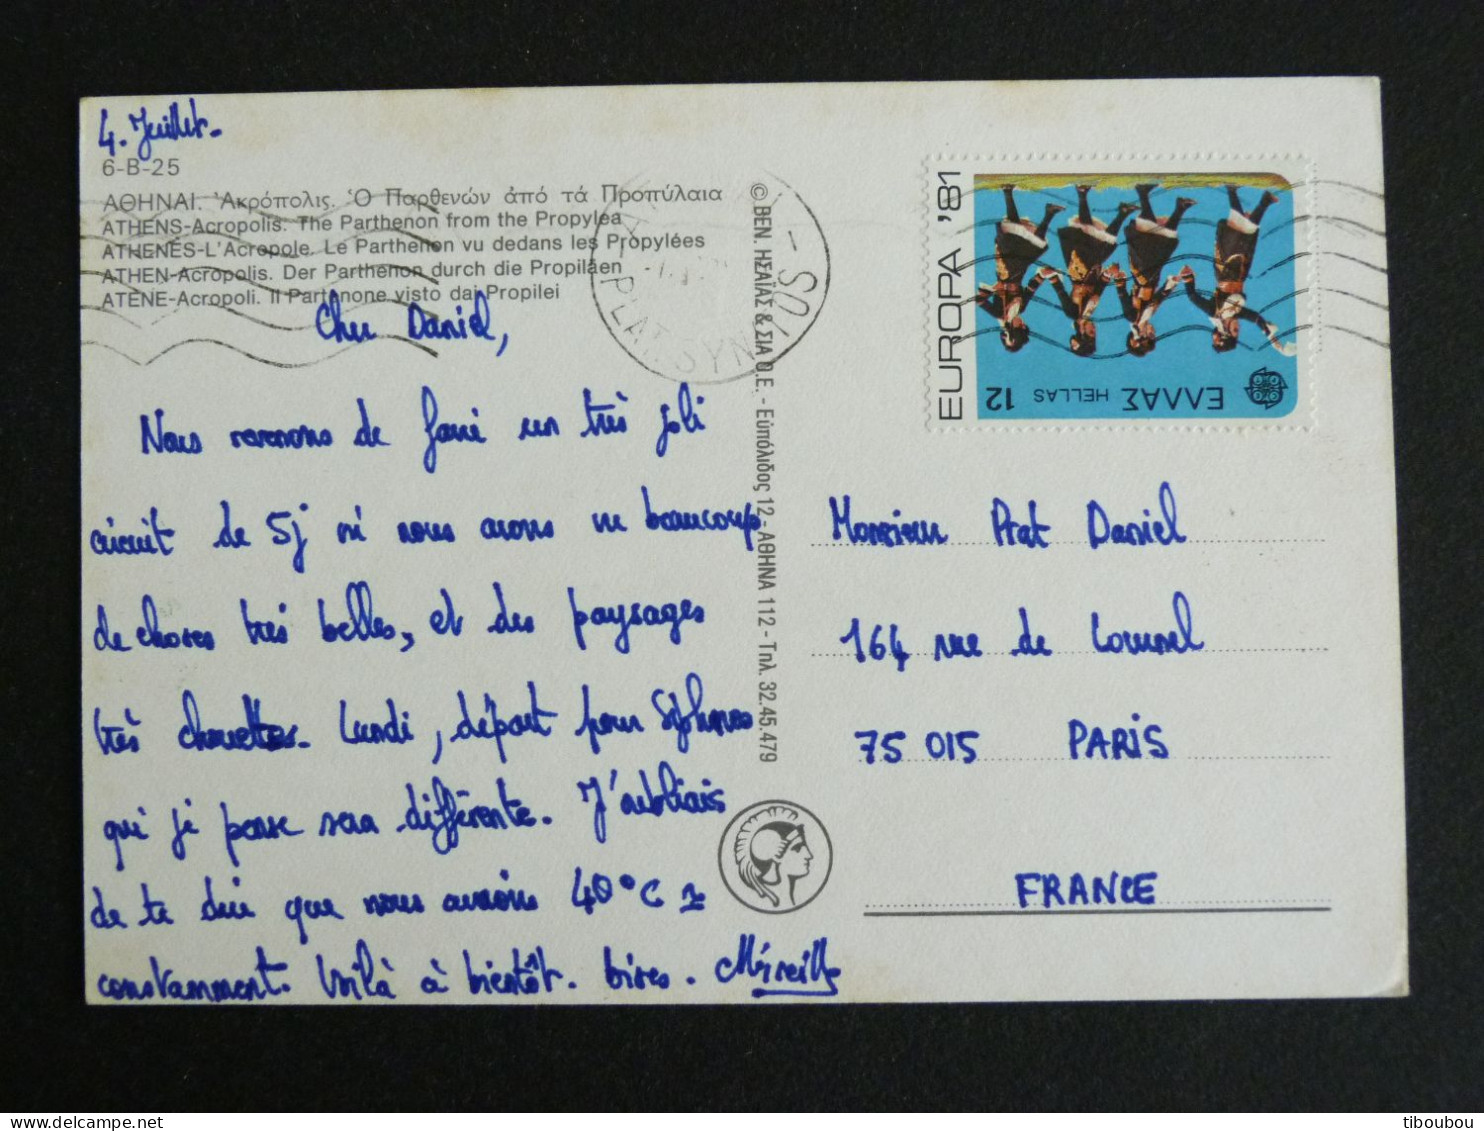 4. Juillet.
6-B-25
ΑΘΗΝΑΙ. Ἀκρόπολις. Ὁ Παρθενών ἀπό τά Προπύλαια
ATHENS-Acropolis. The Parthenon from the Propylea
ATHENES-L'Acropole. Le Parthenon vu dedans les Propylées
ATHEN-Acropolis. Der Parthenon durch die Propiläen
ATENE-Acropoli. Il Partenone visto dai Propilei
Cher Daniel,
Nous revenons de faire un très joli
circuit de 5j où nous avons vu beaucoup
de choses très belles, et des paysages
très chouettes. Lundi, départ pour Siphnos
qui je pense sera différente. J'oubliais
de te dire que nous avions 40°C
constamment. Voilà à bientôt. bises. Mireille
© ΒΕΝ. ΗΣΑΪΑΣ & ΣΙΑ Ο.Ε. - Εὐπόλιδος 12 - ΑΘΗΝΑ 112 - Τηλ. 32.45.479
PLAT. SYN
EUROPA '81
ΕΛΛΑΣ HELLAS 12
Monsieur Prat Daniel
164 rue de Lourmel
75 015 PARIS
FRANCE
tiboubou